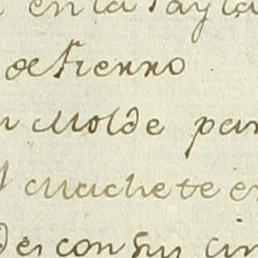 en la Payla
de fierro
Molde par
Machete en
des con su cin